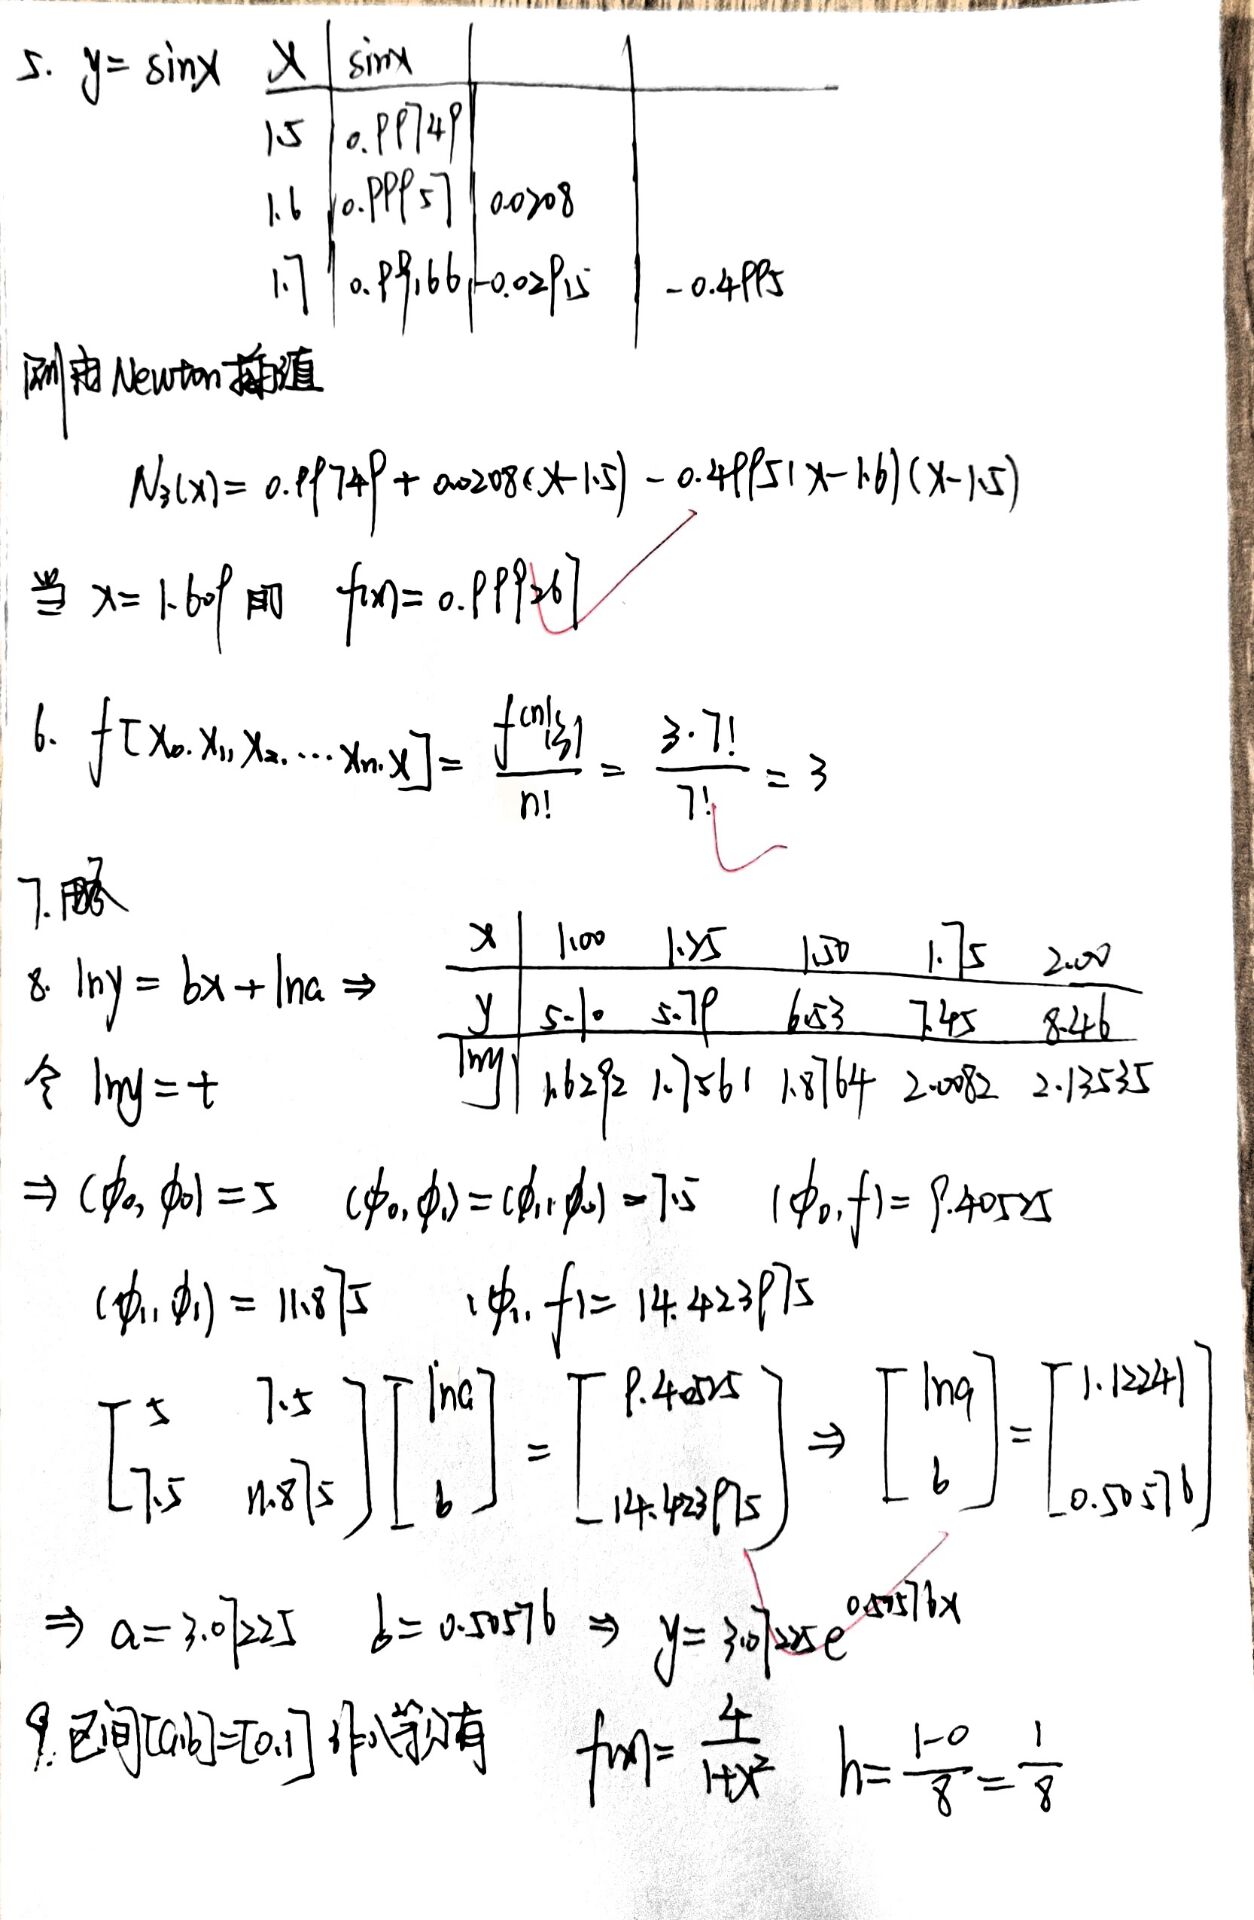 5. y= sinx
x sinx
1.5 0.99749
1.6 0.99957 0.0208
1.7 0.99166 -0.02915 -0.4995
则由Newton插值
N₃(x)= 0.99749+ 0.0208(x-1.5) - 0.4995(x-1.6)(x-1.5)
当 x=1.609 时 f(x)= 0.999267
6. f[x₀.x₁,x₂.…xₙ.x]= f⁽ⁿ⁾(ξ)/n! = 3·7!/7! = 3
7.略
x 1.00 1.25 1.50 1.75 2.00
8. lny= bx+lna ⇒
y 5.10 5.79 6.53 7.45 8.46
令 lny=t
lny 1.6292 1.7561 1.8764 2.0082 2.13535
⇒ (ϕ₀, ϕ₀)=5 (ϕ₀,ϕ₁)=(ϕ₁,ϕ₀)=7.5 (ϕ₀,f)= 9.40525
(ϕ₁,ϕ₁)= 11.875 (ϕ₁,f)= 14.423975
[5 7.5; 7.5 11.875] [lna; b] = [9.40525; 14.423975] ⇒ [lna; b] = [1.12241; 0.50576]
⇒ a=3.07225 b= 0.50576 ⇒ y= 3.07225e^0.50576x
9.区间[a,b]=[0,1]作八等分有 f(x)= 4/(1+x²) h= (1-0)/8 = 1/8